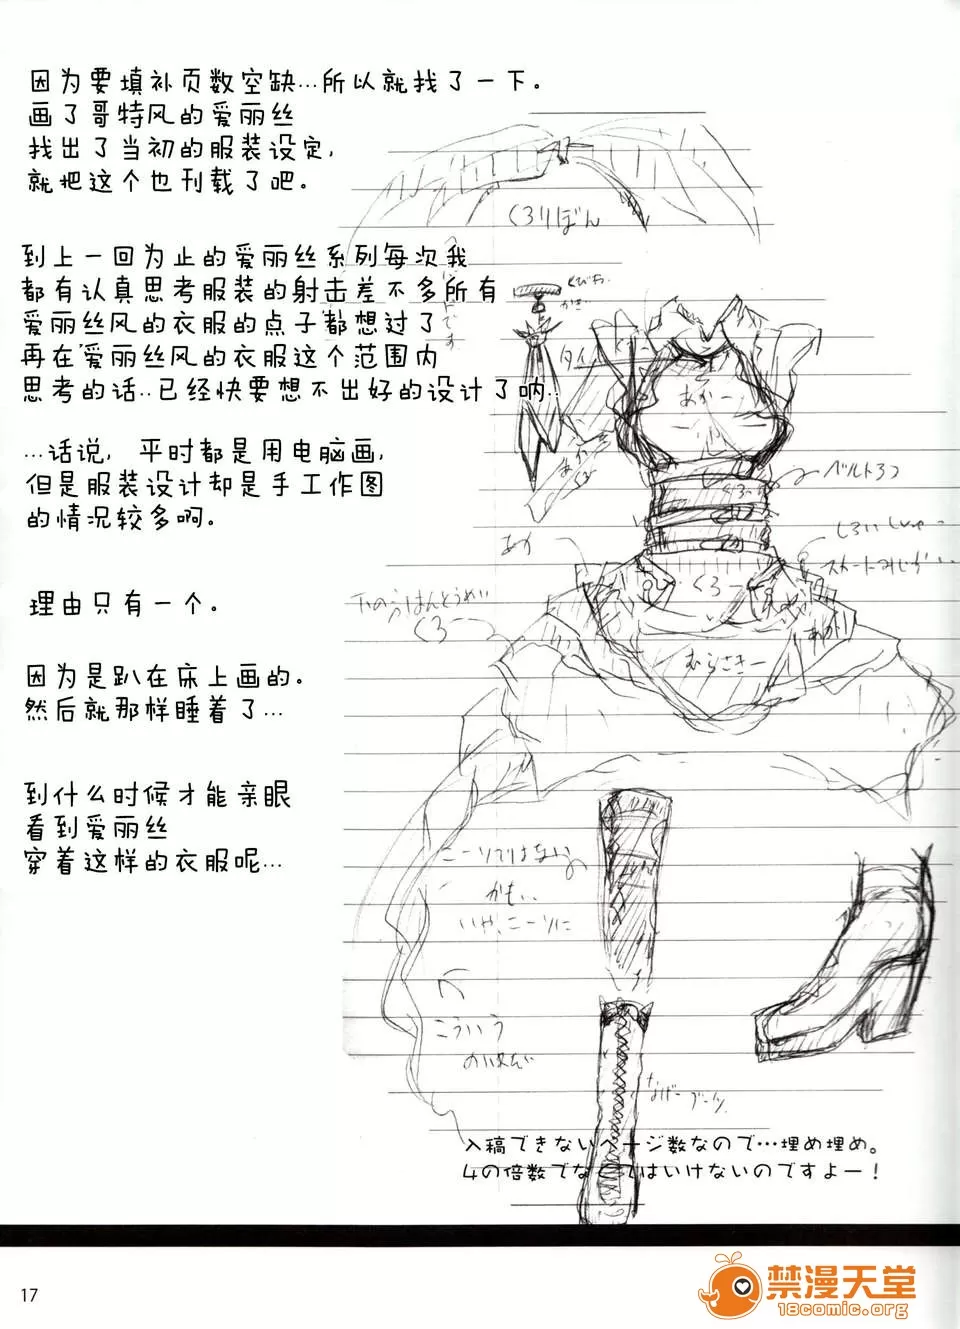 因为要填补页数空缺…所以就找了一下。
画了哥特风的爱丽丝
找出了当初的服装设定，
就把这个也刊载了吧。
到上一回为止的爱丽丝系列每次我
都有认真思考服装的射击差不多所有
爱丽丝风的衣服的点子都想过了
再在爱丽丝风的衣服这个范围内
思考的话‥已经快要想不出好的设计了呐‥
…话说，平时都是用电脑画，
但是服装设计却是手工作图
的情况较多啊。
理由只有一个。
因为是趴在床上画的。
然后就那样睡着了…
到什么时候才能亲眼
看到爱丽丝
穿着这样的衣服呢…
くろりぼん
くびわ
あかー
ベルト3つ
くろー
あか
くろー
下のらはんとうめい
くろー
むらさきー
ニーソではない
かも‥
いや、ニーソに
こういう
ながーブーツ
入稿できないページ数なので…埋め埋め。
4の倍数でなくてはいけないのですよー！
17
禁漫天堂
18comic.org